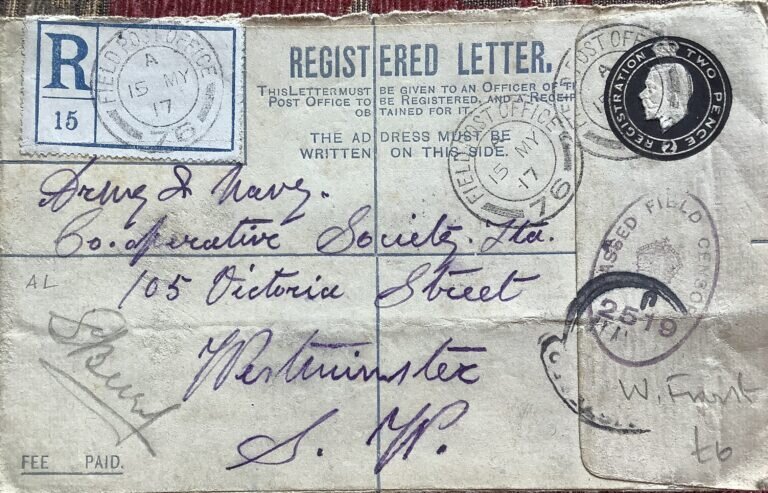 R
15
FIELD POST OFFICE
A
15 MY
17
76
REGISTERED LETTER.
THIS LETTER MUST BE GIVEN TO AN OFFICER OF
POST OFFICE TO BE REGISTERED, AND A
OBTAINED FOR IT.
THE ADDRESS MUST BE
WRITTEN ON THIS SIDE.
FIELD POST OFFICE
15 MY
17
76
POST OFFICE
A
15
REGISTRATION TWO PENCE
2
Army & Navy.
Co-operative Society. Ltd.
105 Victoria Street
Westminster
S. W.
PASSED FIELD CENSOR
2519
AL
W. Frust
£6
FEE PAID.